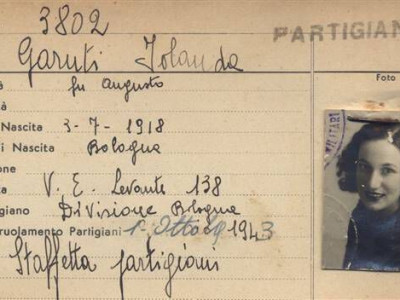 3802
PARTIGIAN
Garuti Jolanda
Foto
à fu Augusto
tà
Nascita 3-7-1918
i Nascita Bologna
ione
ta V. E. Levante 138
giano Divisione Bologna
ruolamento Partigiani 1° Ottob 1943
Staffetta partigiani
MILITARI